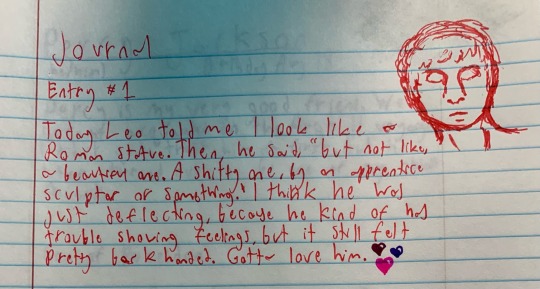 Journal
Entry #1
Today Leo told me I look like a
Roman statue. Then, he said, "but not like,
a beautiful one. A shitty one, by an apprentice
sculptor or something." I think he was
just deflecting, because he kind of has
trouble showing feelings, but it still felt
pretty back handed. Gotta love him.